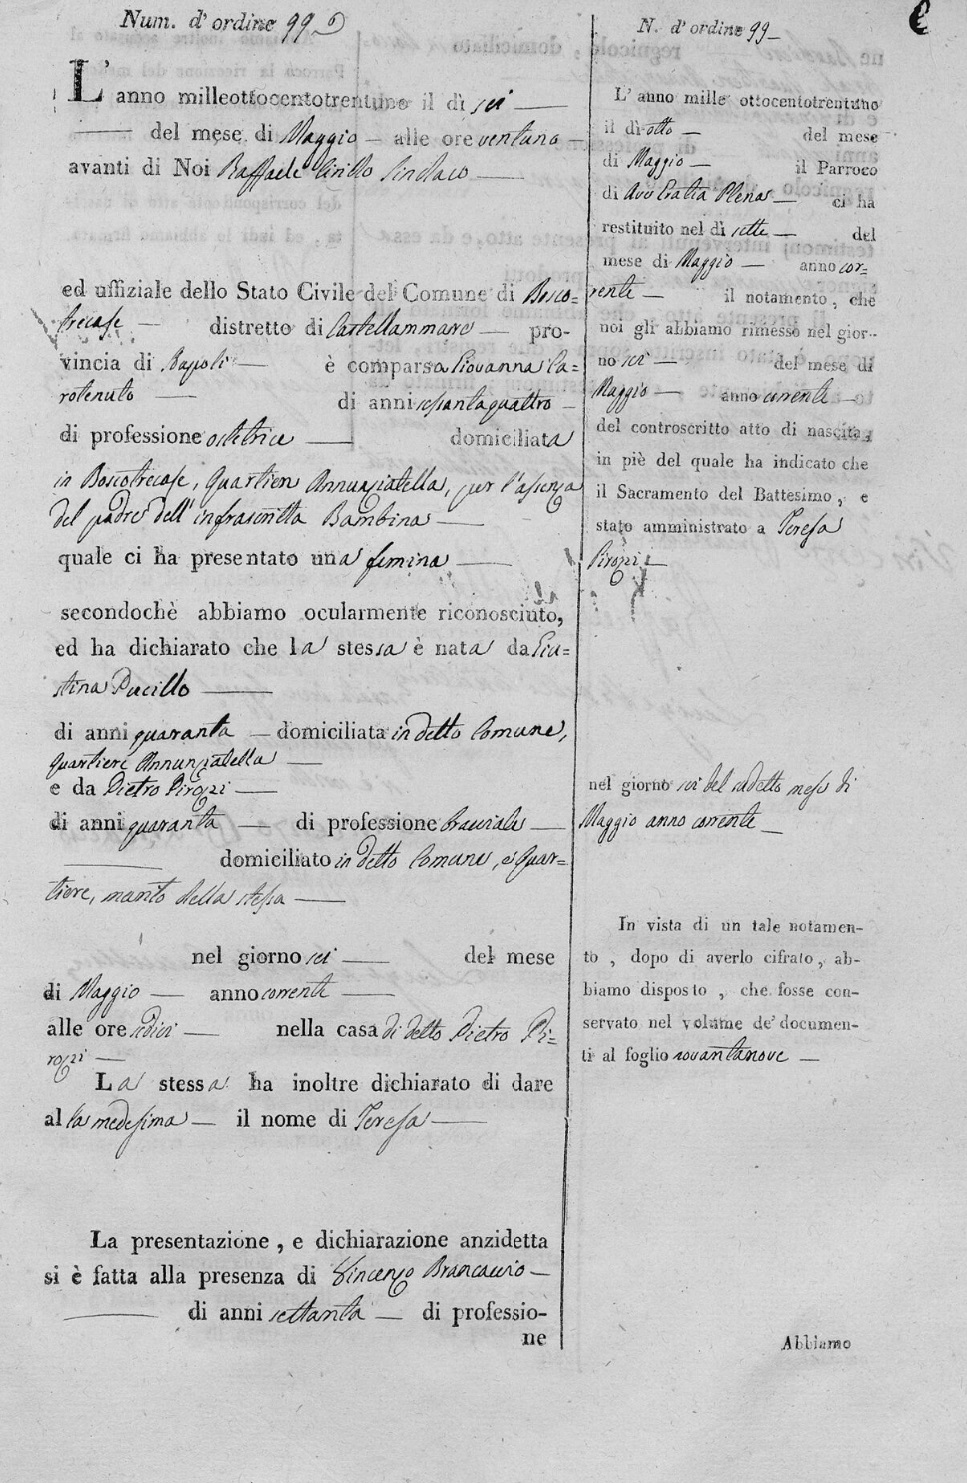 Num. d'ordine 99
L'anno milleottocentotrentuno il dì sei
del mese di Maggio alle ore ventuno
avanti di Noi Raffaele Cirillo Sindaco
ed uffiziale dello Stato Civile del Comune di Bosco=
trecase distretto di Castellammare pro-
vincia di Napoli è comparsa Giovanna Ca=
rotenuto di anni sessantaquattro
di professione ostetrica domiciliata
in Boscotrecase, Quartiere Annunziatella, per l'assenza
del padre dell'infrascritta Bambina
quale ci ha presentato una femina
secondochè abbiamo ocularmente riconosciuto,
ed ha dichiarato che la stessa è nata da Giu=
stina Pucillo
di anni quaranta domiciliata in detto Comune,
quartiere Annunziatella
e da Pietro Pirozzi
di anni quaranta di professione bracciale
domiciliato in detto Comune, e Quar=
tiere, marito della stessa
nel giorno sei del mese
di Maggio anno corrente
alle ore sedici nella casa di detto Pietro Pi=
rozzi
La stessa ha inoltre dichiarato di dare
alla medesima il nome di Teresa
La presentazione, e dichiarazione anzidetta
si è fatta alla presenza di Vincenzo Brancaccio
di anni settanta di professio-
ne
N. d'ordine 99
L'anno mille ottocentotrentuno
il dì otto del mese
di Maggio il Parroco
di Ave Gratia Plena ci ha
restituito nel dì sette del
mese di Maggio anno cor=
rente il notamento, che
noi gli abbiamo rimesso nel gior-
no sei del mese di
Maggio anno corrente
del controscritto atto di nascita,
in piè del quale ha indicato che
il Sacramento del Battesimo, e
stato amministrato a Teresa
Pirozzi
nel giorno sei del sudetto mese di
Maggio anno corrente
In vista di un tale notamen-
to, dopo di averlo cifrato, ab-
biamo disposto, che fosse con-
servato nel volume de' documen-
ti al foglio novantanove
Abbiamo